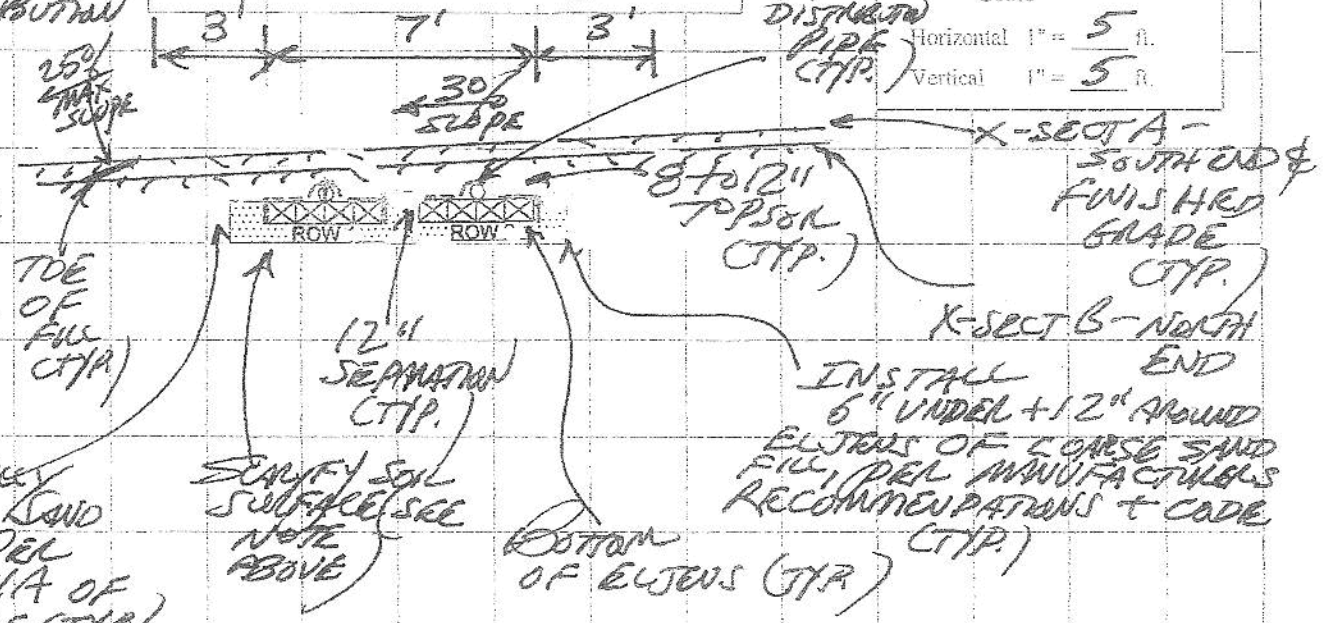 3'
7'
3'
DISTRIBUTO
PIPE
(TYP.)
Horizontal 1" = 5 ft.
Vertical 1" = 5 ft.
25%
MAX
SLOPE
SLOPE
X-SECT A -
SOUTH END &
FINISHED
GRADE
(TYP.)
8 TO 12"
TOPSOIL
(TYP.)
ROW
ROW
TOE
OF
FILL
(TYP.)
12"
SEPARATION
(TYP.)
X-SECT B - NORTH
END
INSTALL
6" UNDER + 12" AROUND
ELJENS OF COARSE SAND
FILL, PER MANUFACTURERS
RECOMMENDATIONS + CODE
(TYP.)
SCARIFY SOIL
SURFACE (SEE
NOTE
ABOVE)
SAND
OF
BOTTOM
OF ELJENS (TYP.)